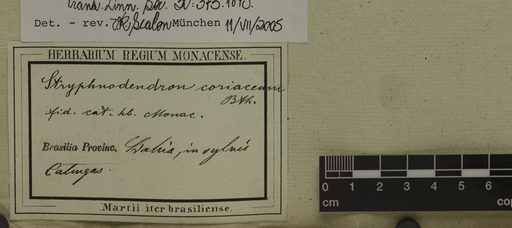 Trans. Linn. Soc. 
Det. - rev. Scalon München 11/VII/2005
HERBARIUM REGIUM MONACENSE.
Stryphnodendron coriaceum
Bth.
fid. cat. hb. Monac.
Brasilia Provinc. Bahia, in sylvis
Catingas.
Martii iter brasiliense.
0 1 2 3 4 5 6
cm
cop